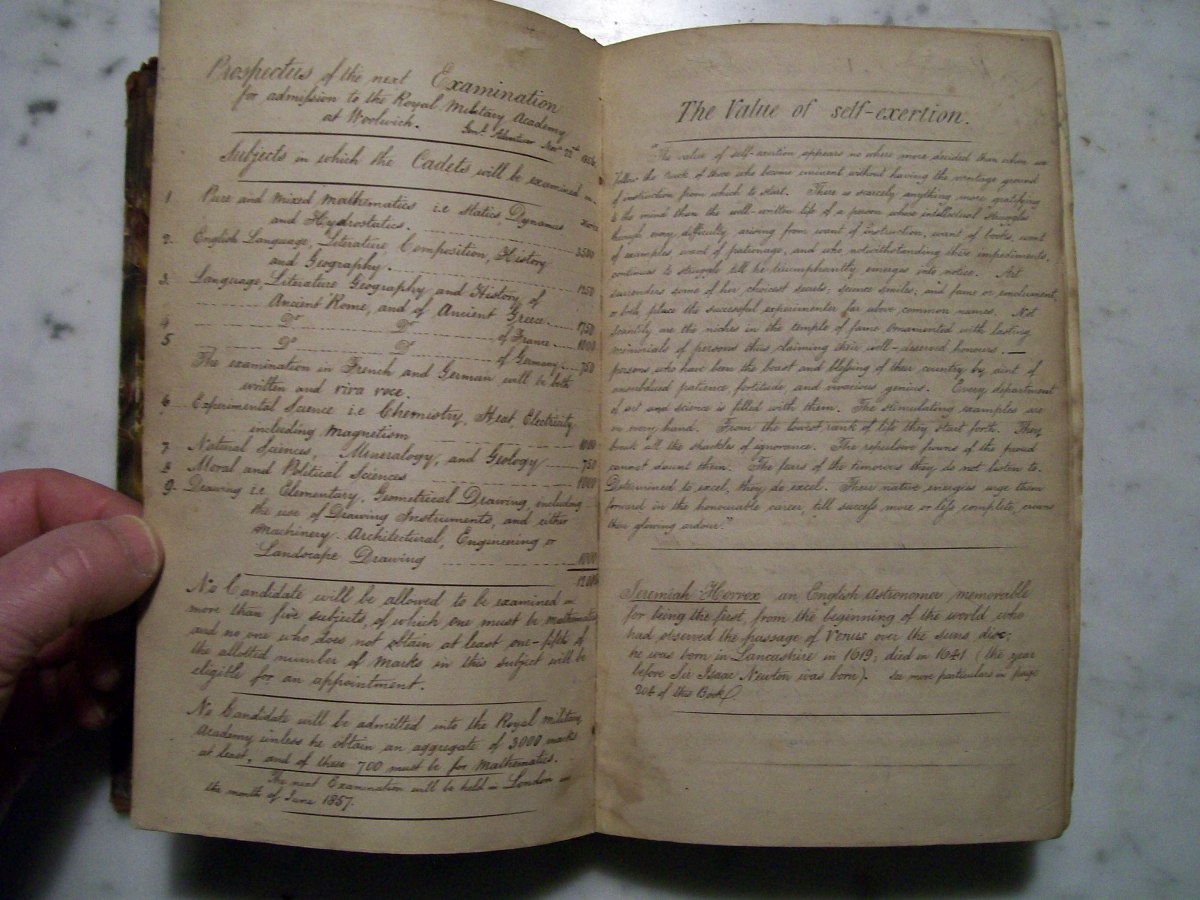 Prospectus of the next Examination
for admission to the Royal Military Academy
at Woolwich. Novr 22nd
Subjects in which the Cadets will be examined in.
Marks
1. Pure and mixed mathematics i.e Statics, Dynamics
and Hydrostatics. 3500
2. English Language, Literature, Composition, History
and Geography. 1250
3. Language, Literature Geography and History of
Ancient Rome, and of Ancient Greece 1750
4 Do Do of France 1000
5 Do Do of Germany 750
The examination in French and German will be both
written and viva voce.
6 Experimental Science i.e Chemistry, Heat, Electricity,
including magnetism 1000
7 Natural Sciences, Mineralogy, and Geology 750
8 Moral and Political Sciences 1000
9. Drawing i.e Elementary, Geometrical Drawing, including
the use of Drawing Instruments, and either
Machinery. Architectural, Engineering or
Landscape Drawing 1000
No Candidate will be allowed to be examined in
more than five subjects, of which one must be mathematics
and no one who does not obtain at least one-fifth of
the allotted number of marks in this subject will be
eligible for an appointment.
No Candidate will be admitted into the Royal Military
Academy unless he obtain an aggregate of 3000 marks
at least, and of these 700 must be for mathematics.
The next Examination will be held in London in
the month of June 1857.
The Value of self-exertion.
"The value of self-exertion appears no where more decided than when we
follow the track of those who become eminent without having the vantage ground
of instruction from which to start. There is scarcely anything more gratifying
to the mind than the well-written life of a person whose intellectual struggles
through every difficulty, arising from want of instruction, want of books, want
of examples want of patronage, and who notwithstanding these impediments,
continues to struggle till he triumphantly emerges into notice. Art
surrenders some of her choicest secrets; science smiles; and fame or emolument,
or both place the successful experimenter far above common names. Not
scantily are the niches in the temple of fame ornamented with lasting
memorials of persons thus claiming their well-deserved honours. —
persons who have been the boast and blessing of their country by dint of
unsubdued patience fortitude and vivacious genius. Every department
of art and science is filled with them. The stimulating examples are
on every hand. From the lowest rank of life they start forth. They
break all the shackles of ignorance. The repulsive frowns of the proud
cannot daunt them. The fears of the timorous they do not listen to.
Determined to excel, they do excel. Their native energies urge them
forward in the honourable career, till success more or less complete, crowns
their glowing ardour."
Jeremiah Horrox an English Astronomer memorable
for being the first, from the beginning of the world who
had observed the passage of Venus over the suns disc;
he was born in Lancashire in 1619; died in 1641 (the year
before Sir Isaac Newton was born). see more particulars in page
204 of this Book